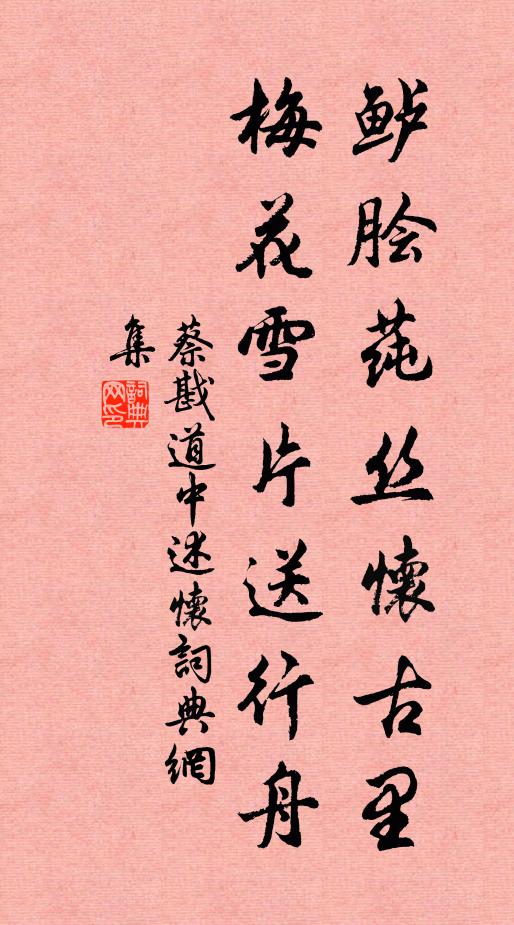 鲈脍莼丝懷古里
梅花雪片送行舟
蔡戡道中述懷詞典網
集
詞典
网印